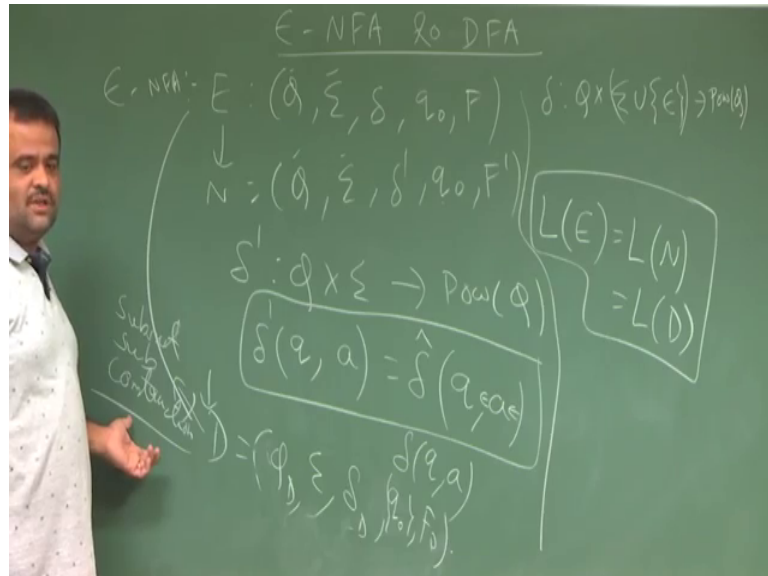 ε-NFA to DFA
ε-NFA:- E : (Q, Σ, δ, q₀, F)
δ : Q × (Σ ∪ {ε}) → Pow(Q)
↓
N := (Q, Σ, δ', q₀, F')
L(E) = L(N)
= L(D)
δ' : Q × Σ → Pow(Q)
δ'(q, a) = δ̂(q, εaε)
Subset
Sub
Construction
↓
δ(q, a)
D = (Q_D, Σ, δ_D, {q₀}, F_D).